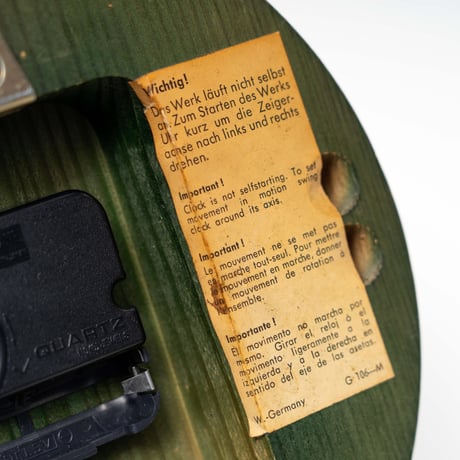 Wichtig!
Das Werk läuft nicht selbst
an. Zum Starten des Werks
Uhr kurz um die Zeiger-
achse nach links und rechts
drehen.
Important!
Clock is not selfstarting. To set
movement in motion swing
clock around its axis.
Important!
Le mouvement ne se met pas
en marche tout-seul. Pour mettre
le mouvement en marche, donner
un mouvement de rotation à
l'ensemble.
Importante!
El movimento no marcha por
mismo. Girar el reloj ó el
movimento ligeramente a la
izquierda y a la derecha en
sentido del eje de las asetas.
G 106-M
W.-Germany
QUARTZ